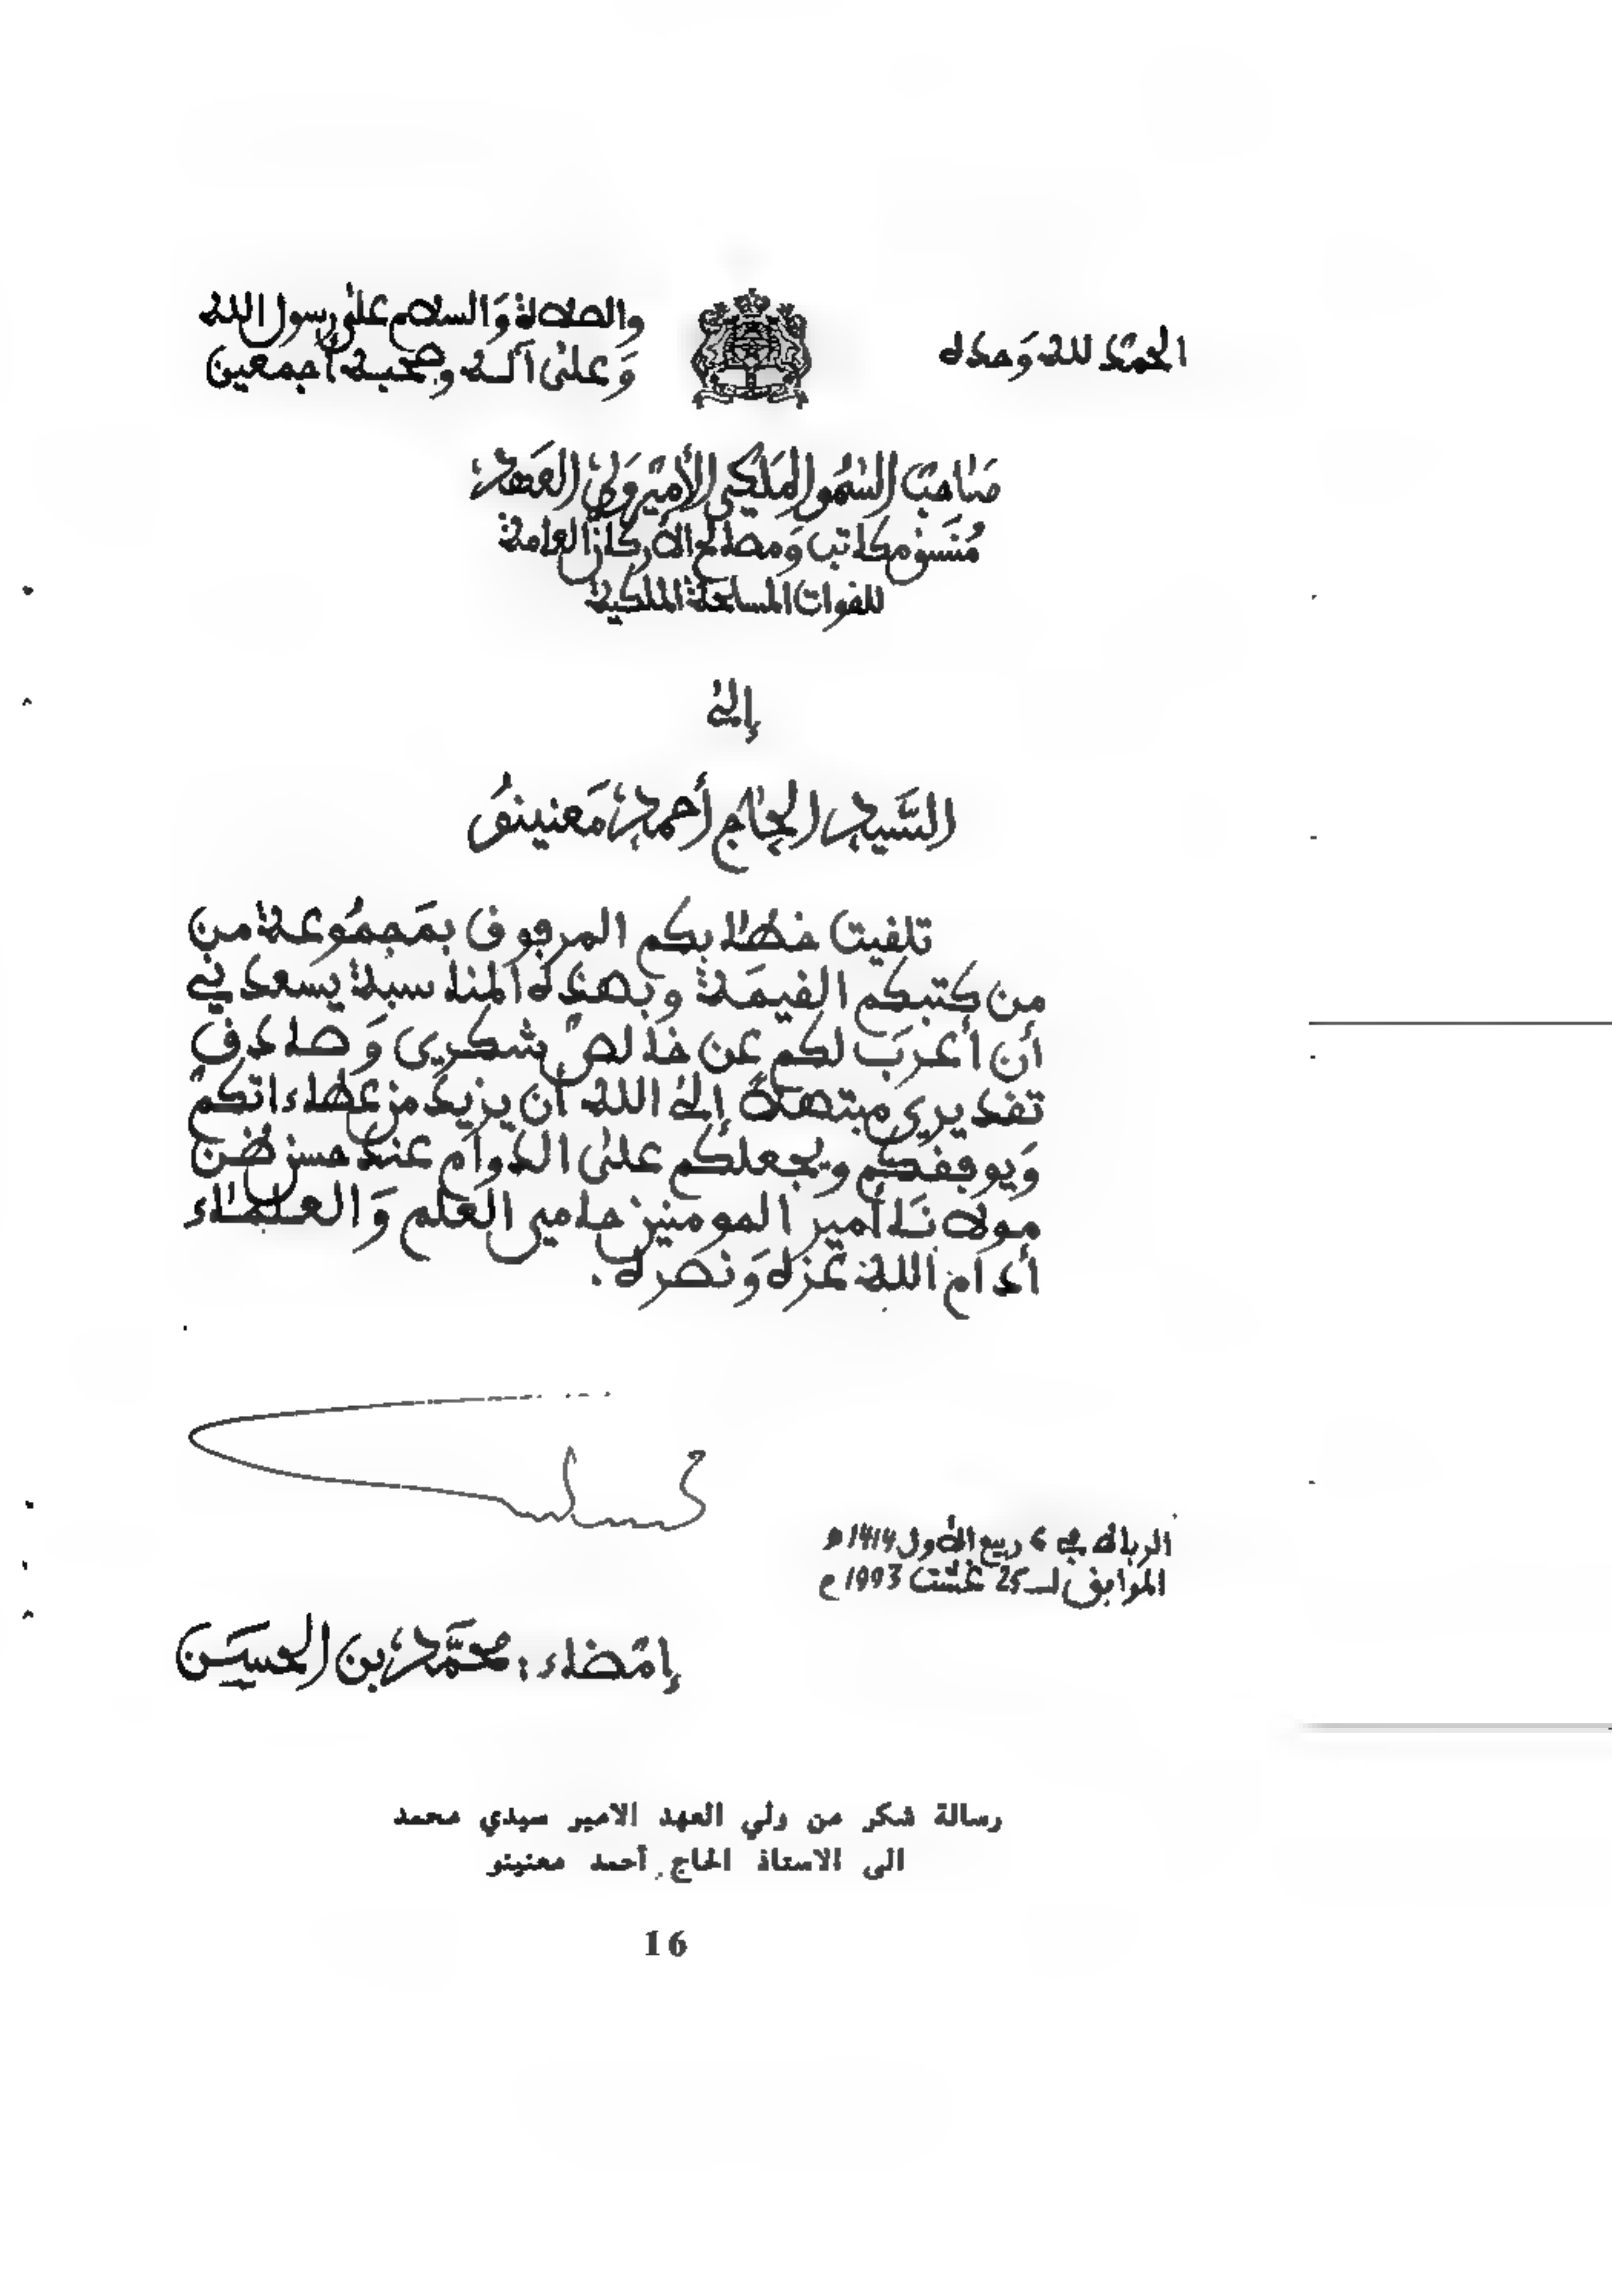 الحمد لله وحده
والصلاة والسلام على رسول الله
وعلى آله وصحبه أجمعين
صاحب السمو الملكي الأمير ولي العهد
منسق مكاتب ومصالح الأركان العامة
للقوات المسلحة الملكية
إلى
السيد الحاج أحمد معنينو
تلقيت خطابكم المرفوق بمجموعة من
من كتبكم القيمة وبهذه المناسبة يسعدني
أن أعرب لكم عن خالص شكري وصادق
تقديري مبتهلا إلى الله أن يزيد من عطاءاتكم
ويوفقكم ويجعلكم على الدوام عند حسن ظن
مولانا أمير المومنين حامي العلم والعلماء
أدام الله عزه ونصره.
الرباط في 6 ربيع الأول 1414 هـ
الموافق لـ 25 غشت 1993 م
إمضاء : محمد بن الحسن
رسالة شكر من ولي العهد الامير سيدي محمد
الى الاستاذ الحاج أحمد معنينو
16